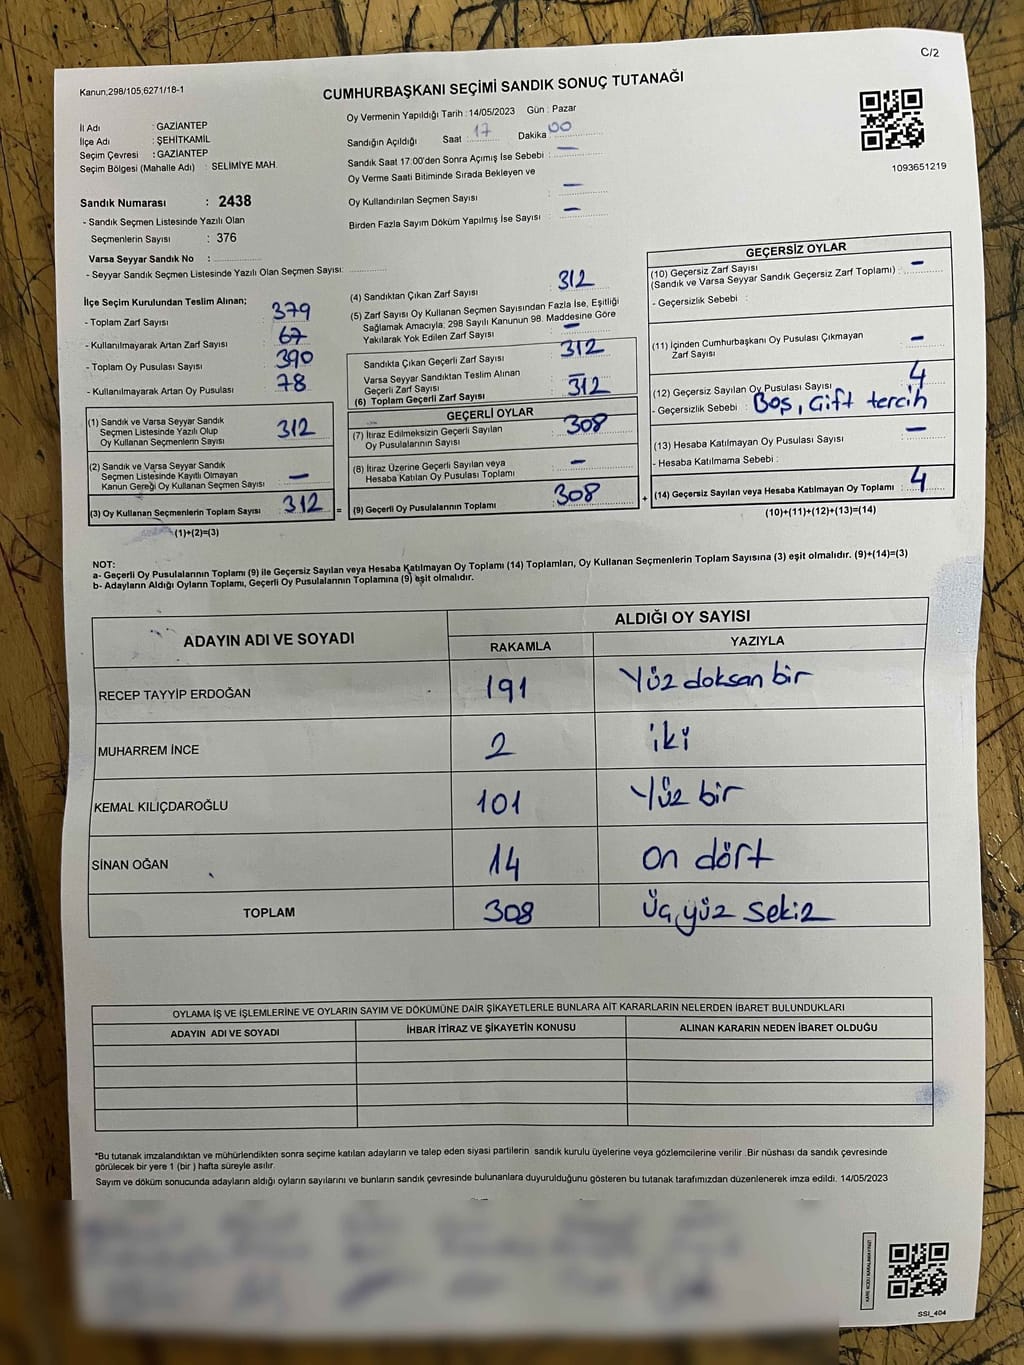 C/2
Kanun,298/105,6271/18-1
CUMHURBAŞKANI SEÇİMİ SANDIK SONUÇ TUTANAĞI
Oy Vermenin Yapıldığı Tarih : 14/05/2023 Gün : Pazar
İl Adı : GAZİANTEP
İlçe Adı : ŞEHİTKAMİL
Seçim Çevresi : GAZİANTEP
Seçim Bölgesi (Mahalle Adı) : SELIMIYE MAH.
Sandığın Açıldığı Saat : 17 Dakika 00
Sandık Saat 17.00'den Sonra Açımış İse Sebebi : —
Oy Verme Saati Bitiminde Sırada Bekleyen ve
Oy Kullandırılan Seçmen Sayısı : —
Birden Fazla Sayım Döküm Yapılmış İse Sayısı : —
1093651219
Sandık Numarası : 2438
- Sandık Seçmen Listesinde Yazılı Olan
Seçmenlerin Sayısı : 376
Varsa Seyyar Sandık No :
- Seyyar Sandık Seçmen Listesinde Yazılı Olan Seçmen Sayısı:
İlçe Seçim Kurulundan Teslim Alınan;
- Toplam Zarf Sayısı : 379
- Kullanılmayarak Artan Zarf Sayısı : 67
- Toplam Oy Pusulası Sayısı : 390
- Kullanılmayarak Artan Oy Pusulası : 78
(1) Sandık ve Varsa Seyyar Sandık
Seçmen Listesinde Yazılı Olup
Oy Kullanan Seçmenlerin Sayısı : 312
(2) Sandık ve Varsa Seyyar Sandık
Seçmen Listesinde Kayıtlı Olmayan
Kanun Gereği Oy Kullanan Seçmen Sayısı : —
(3) Oy Kullanan Seçmenlerin Toplam Sayısı : 312 =
(1)+(2)=(3)
(4) Sandıktan Çıkan Zarf Sayısı : 312
(5) Zarf Sayısı Oy Kullanan Seçmen Sayısından Fazla İse, Eşitliği
Sağlamak Amacıyla; 298 Sayılı Kanunun 98. Maddesine Göre
Yakılarak Yok Edilen Zarf Sayısı : —
Sandıkta Çıkan Geçerli Zarf Sayısı : 312
Varsa Seyyar Sandıktan Teslim Alınan
Geçerli Zarf Sayısı : —
(6) Toplam Geçerli Zarf Sayısı : 312
GEÇERLİ OYLAR
(7) İtiraz Edilmeksizin Geçerli Sayılan
Oy Pusulalarının Sayısı : 308
(8) İtiraz Üzerine Geçerli Sayılan veya
Hesaba Katılan Oy Pusulası Toplamı : —
(9) Geçerli Oy Pusulalarının Toplamı : 308 +
GEÇERSİZ OYLAR
(10) Geçersiz Zarf Sayısı
(Sandık ve Varsa Seyyar Sandık Geçersiz Zarf Toplamı) : —
- Geçersizlik Sebebi :
(11) İçinden Cumhurbaşkanı Oy Pusulası Çıkmayan
Zarf Sayısı : —
(12) Geçersiz Sayılan Oy Pusulası Sayısı : 4
- Geçersizlik Sebebi : Boş, Çift tercih
(13) Hesaba Katılmayan Oy Pusulası Sayısı : —
- Hesaba Katılmama Sebebi :
(14) Geçersiz Sayılan veya Hesaba Katılmayan Oy Toplamı : 4
(10)+(11)+(12)+(13)=(14)
NOT:
a- Geçerli Oy Pusulalarının Toplamı (9) ile Geçersiz Sayılan veya Hesaba Katılmayan Oy Toplamı (14) Toplamları, Oy Kullanan Seçmenlerin Toplam Sayısına (3) eşit olmalıdır. (9)+(14)=(3)
b- Adayların Aldığı Oyların Toplamı, Geçerli Oy Pusulalarının Toplamına (9) eşit olmalıdır.
ADAYIN ADI VE SOYADI
ALDIĞI OY SAYISI
RAKAMLA YAZIYLA
RECEP TAYYİP ERDOĞAN 191 Yüz doksan bir
MUHARREM İNCE 2 iki
KEMAL KILIÇDAROĞLU 101 Yüz bir
SİNAN OĞAN 14 on dört
TOPLAM 308 üç yüz sekiz
OYLAMA İŞ VE İŞLEMLERİNE VE OYLARIN SAYIM VE DÖKÜMÜNE DAİR ŞİKAYETLERLE BUNLARA AİT KARARLARIN NELERDEN İBARET BULUNDUKLARI
ADAYIN ADI VE SOYADI İHBAR İTİRAZ VE ŞİKAYETİN KONUSU ALINAN KARARIN NEDEN İBARET OLDUĞU
*Bu tutanak imzalandıktan ve mühürlendikten sonra seçime katılan adayların ve talep eden siyasi partilerin sandık kurulu üyelerine veya gözlemcilerine verilir .Bir nüshası da sandık çevresinde
görülecek bir yere 1 (bir ) hafta süreyle asılır.
Sayım ve döküm sonucunda adayların aldığı oyların sayılarını ve bunların sandık çevresinde bulunanlara duyurulduğunu gösteren bu tutanak tarafımızdan düzenlenerek imza edildi. 14/05/2023
KARE KODU KARALAMAYINIZ!
SSİ_404